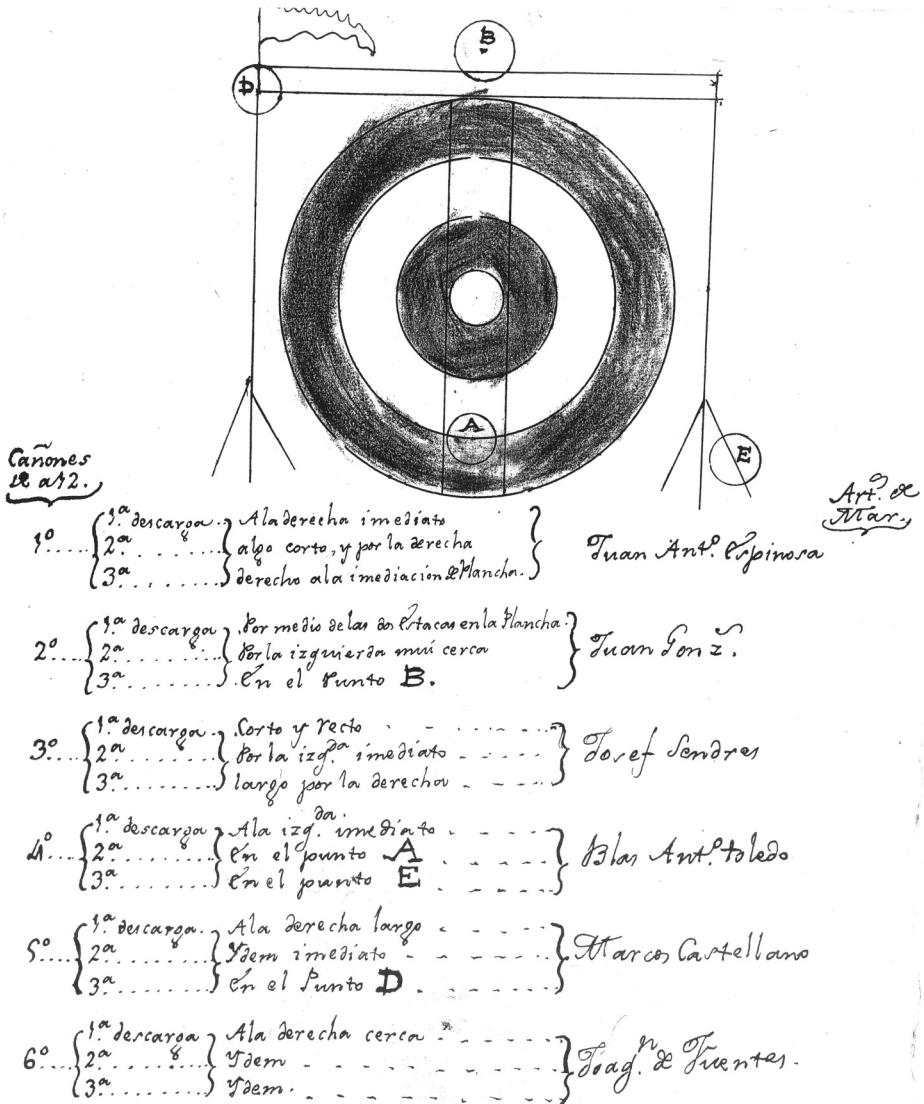 B
D
A
E
Cañones
de a 12.
Art.º de
Mar.
1º.... 1.ª descarga. Ala derecha imediato
2ª algo corto, y por la derecha
3ª derecho ala imediacion de Plancha.
Juan Ant.º Espinosa
2º.... 1.ª descarga Por medio de las dos Estacas en la Plancha.
2ª Por la izquierda mui cerca
3ª En el Punto B.
Juan Gonz.
3º.... 1.ª descarga Corto y recto
2ª Por la izq.da imediato
3ª largo por la derecha
Josef Sendres
4º.... 1.ª descarga Ala izq.da imediato
2ª En el punto A
3ª En el punto E
Blas Ant.º toledo
5º.... 1.ª descarga. Ala derecha largo
2ª Ydem imediato
3ª En el Punto D
Marcos Castellano
6º.... 1.ª descarga Ala derecha cerca
2ª Ydem
3ª Ydem.
Joaq.n de Fuentes.